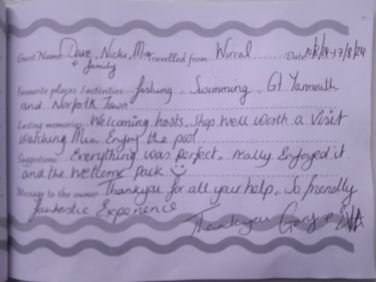 Guest Name Dave, Nicky, Mum Travelled from Wirral Date /8/24-17/8/24
& family
Favourite places / activities fishing. Swimming. Gt Yarmouth
and Norfolk Town
Lasting memories Welcoming hosts. Shop well worth a visit
watching Mum Enjoy the pool
Suggestions Everything was perfect, really Enjoyed it
and the welcome pack
Message to the owner Thankyou for all your help. So friendly
fantastic Experience
Thankyou